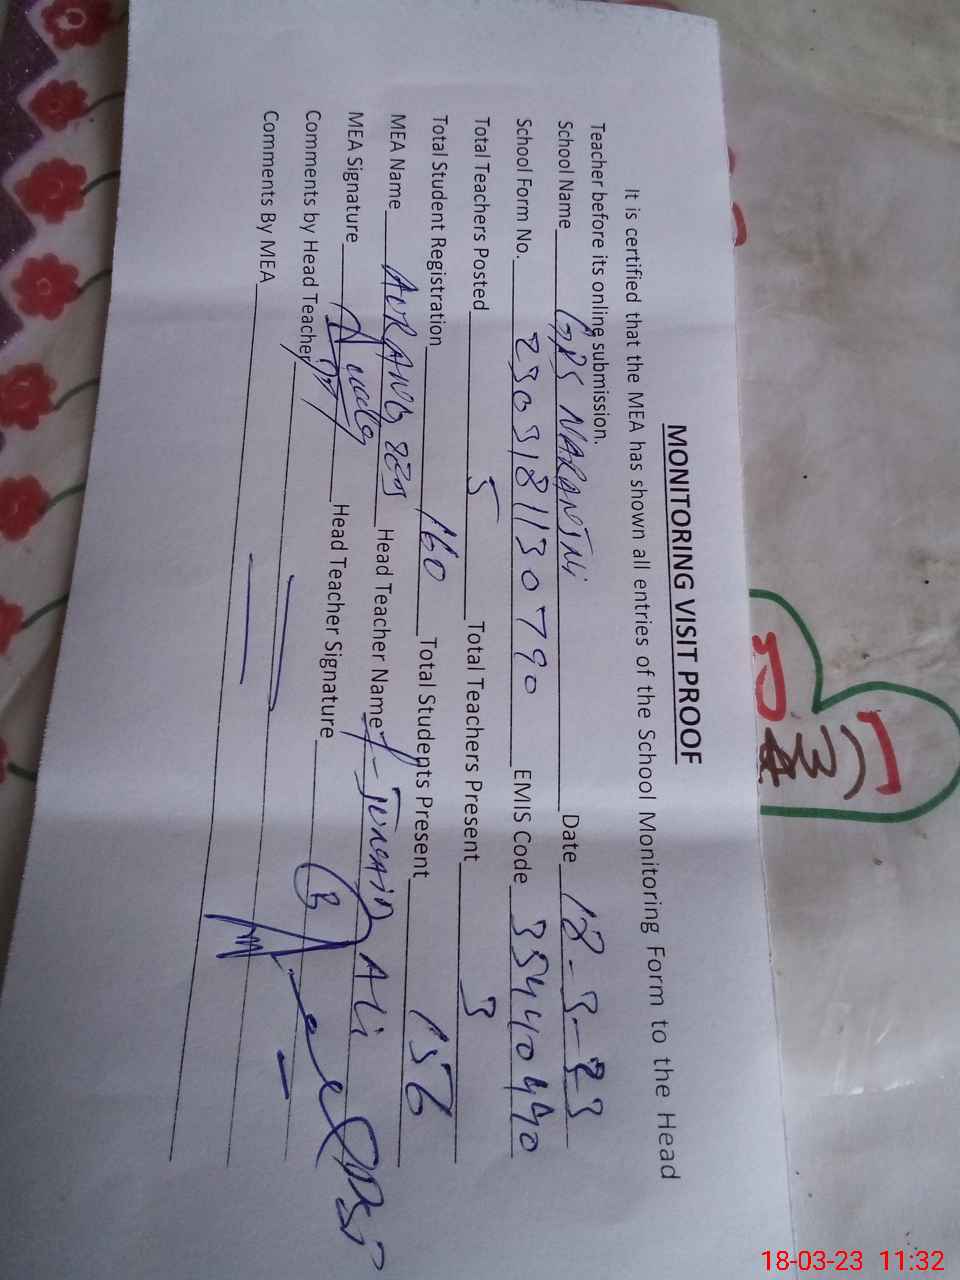 MONITORING VISIT PROOF
It is certified that the MEA has shown all entries of the School Monitoring Form to the Head
Teacher before its online submission.
School Name GPS NARANJNI Date 18-3-23
School Form No. 230318113079 0 EMIS Code 35440490
Total Teachers Posted 5 Total Teachers Present 3
Total Student Registration 160 Total Students Present 156
MEA Name AURANGZEB Head Teacher Name Junaid Ali
MEA Signature Head Teacher Signature
Comments by Head Teacher
Comments By MEA
18-03-23 11:32